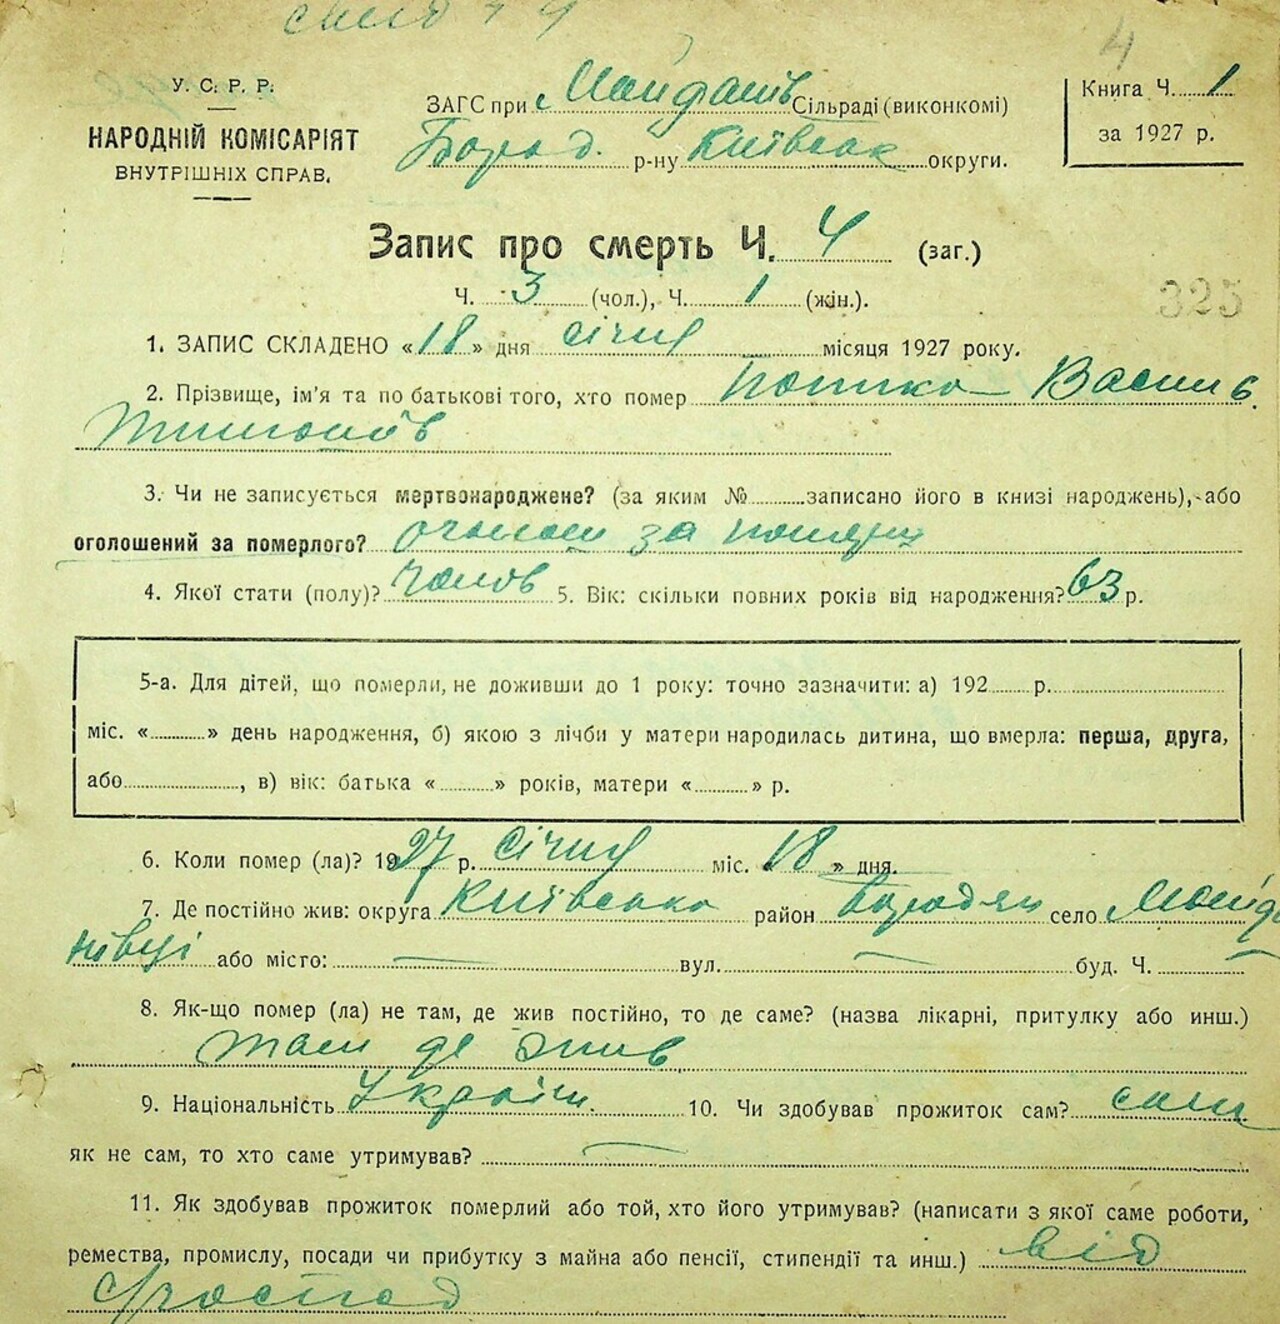 4
У. С. Р. Р.
НАРОДНІЙ КОМІСАРІЯТ
ВНУТРІШНІХ СПРАВ.
ЗАГС при Майданів Сільраді (виконкомі)
Бород. р-ну Київськ округи.
Книга Ч. 1
за 1927 р.
Запис про смерть Ч. 4 (заг.)
Ч. 3 (чол.), Ч. 1 (жін.).
325
1. ЗАПИС СКЛАДЕНО «18» дня січня місяця 1927 року.
2. Прізвище, ім'я та по батькові того, хто помер Василь
3. Чи не записується мертвонароджене? (за яким № записано його в книзі народжень), або
оголошений за померлого? за
4. Якої стати (полу)? чолов 5. Вік: скільки повних років від народження? 63 р.
5-а. Для дітей, що померли, не доживши до 1 року: точно зазначити: а) 192 р.
міс. « » день народження, б) якою з лічби у матери народилась дитина, що вмерла: перша, друга,
або , в) вік: батька « » років, матери « » р.
6. Коли помер (ла)? 1927 р. січня міс. «18» дня.
7. Де постійно жив: округа Київська район Бородян село Майда
нівці або місто: — вул. — буд. Ч. —
8. Як-що помер (ла) не там, де жив постійно, то де саме? (назва лікарні, притулку або инш.)
там де жив
9. Національність Україн. 10. Чи здобував прожиток сам? сам
як не сам, то хто саме утримував? —
11. Як здобував прожиток померлий або той, хто його утримував? (написати з якої саме роботи,
ремества, промислу, посади чи прибутку з майна або пенсії, стипендії та инш.) від